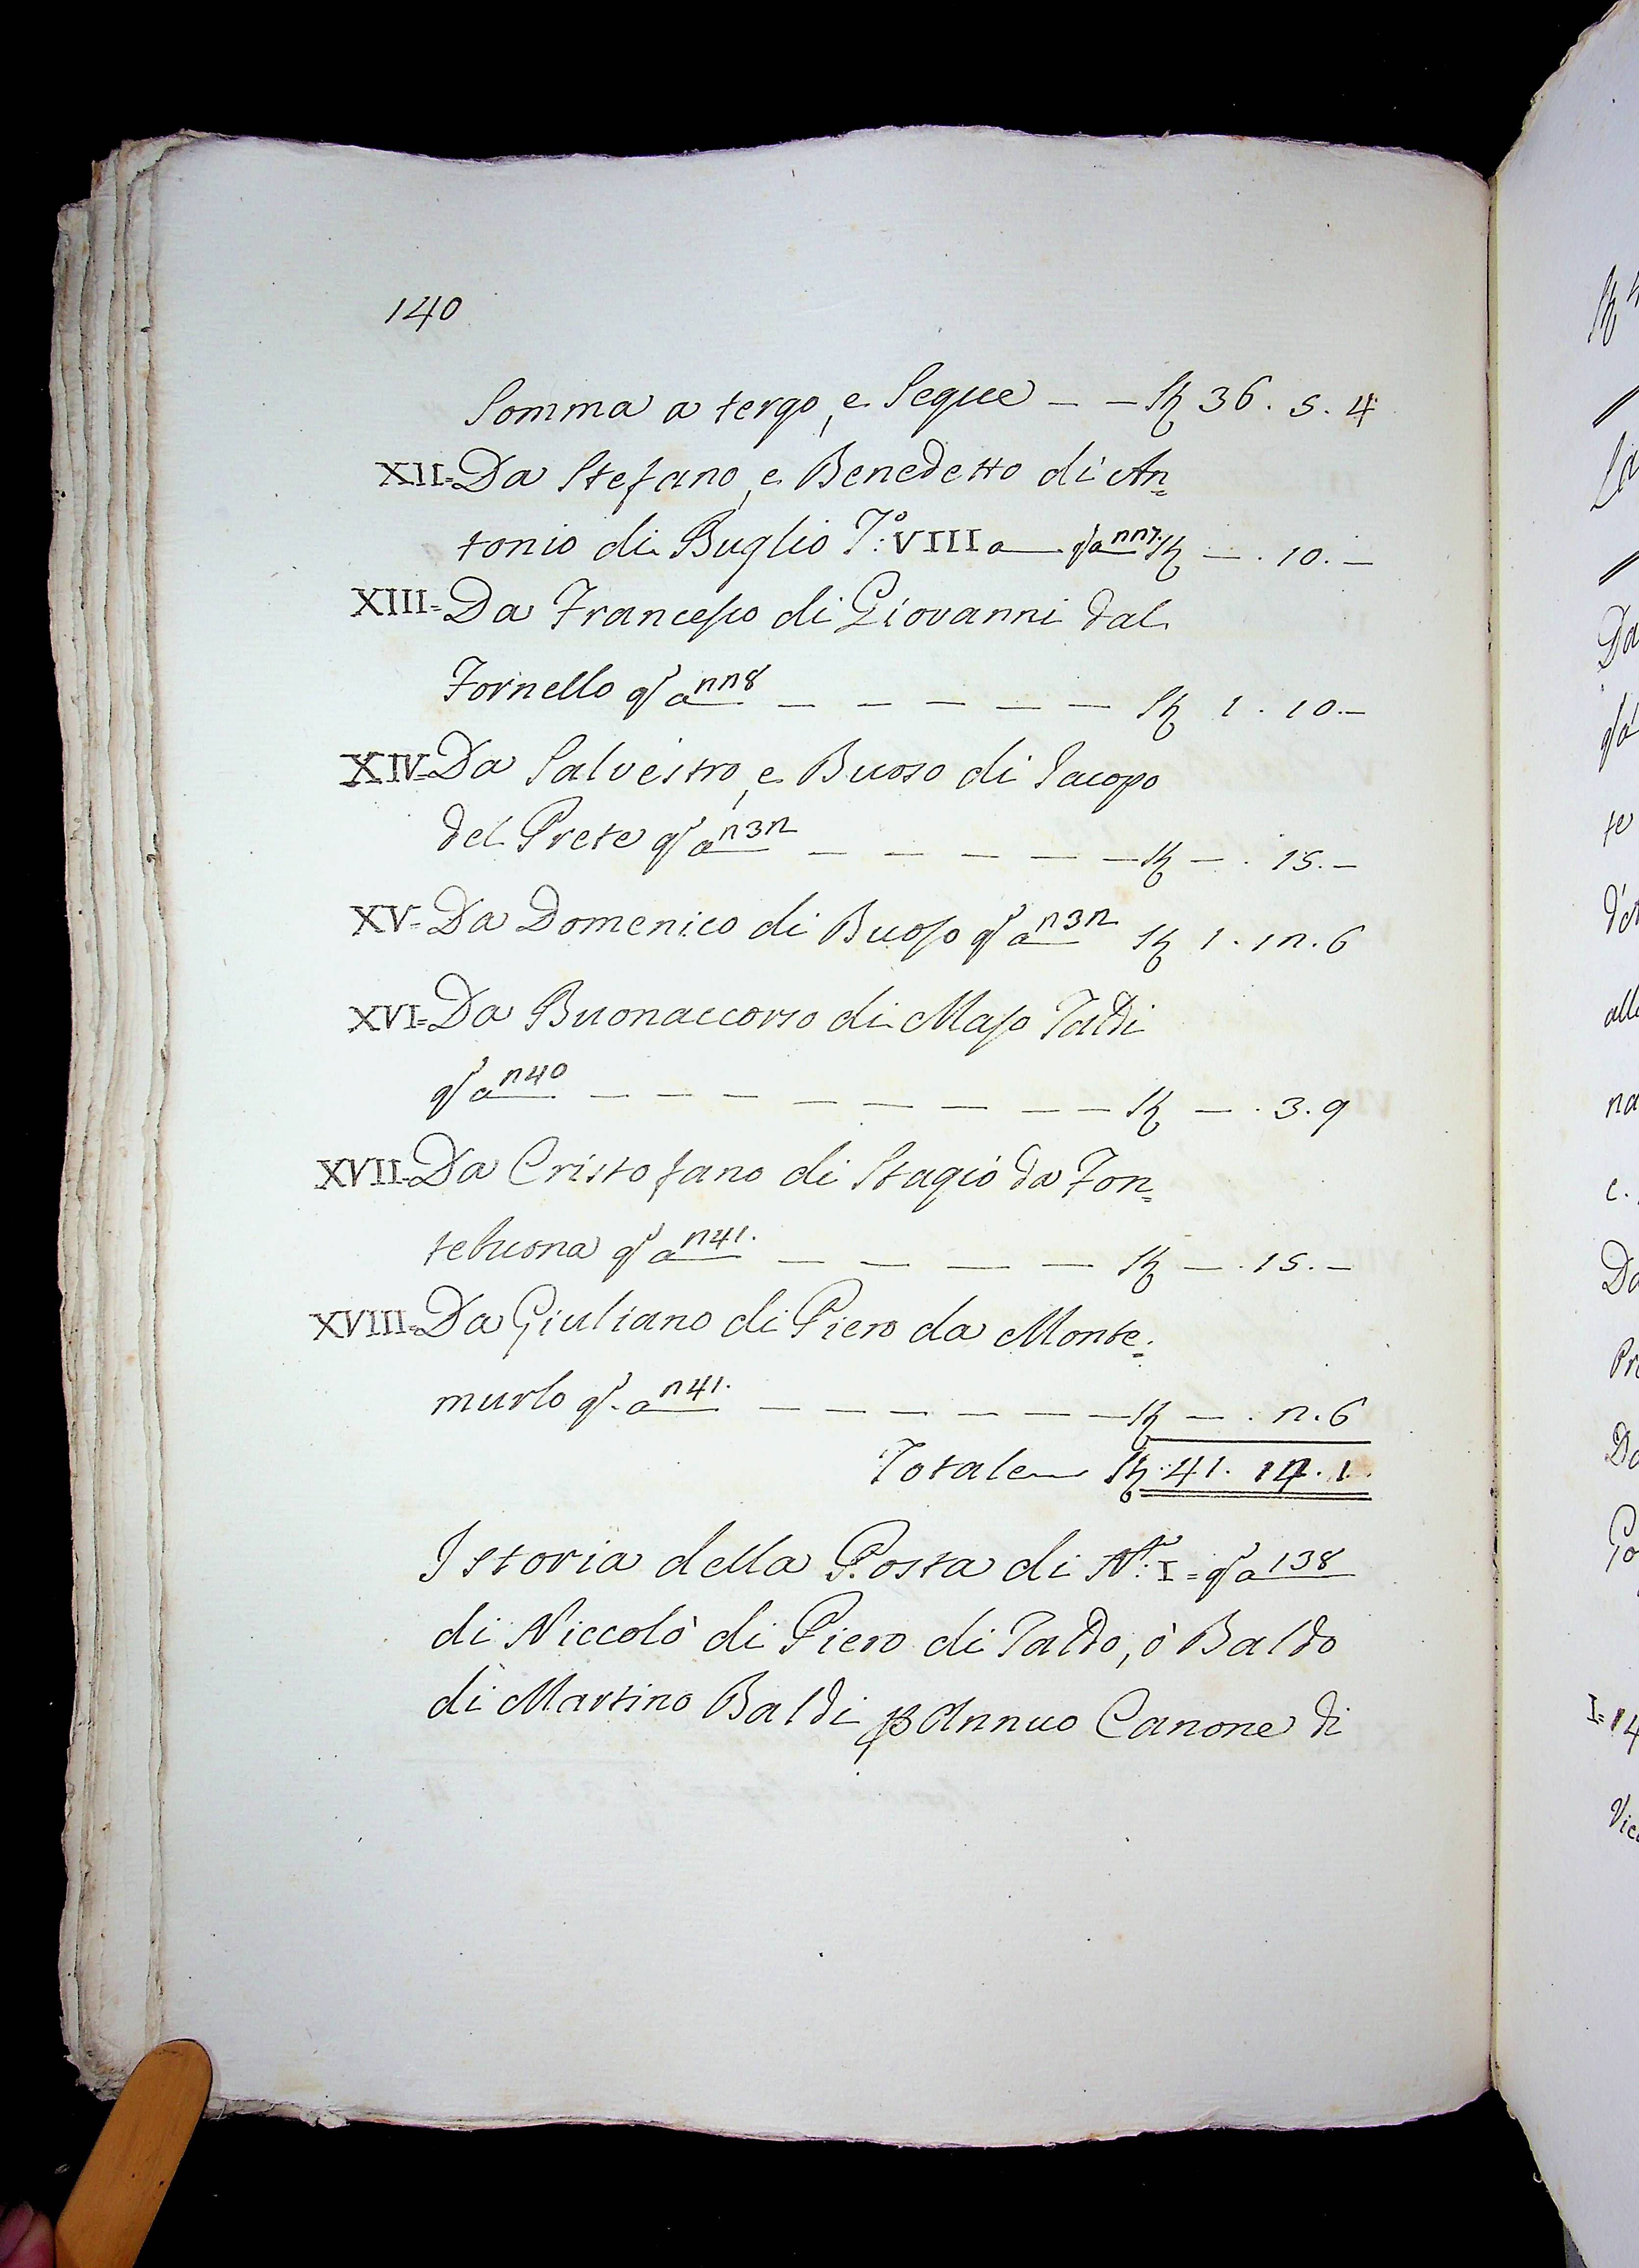 140
Somma a tergo, e Segue — — ℔ 36. 5. 4
XII= Da Stefano, e Benedetto di An=
tonio di Buglio T.º VIII a — q' a 227. ℔ — . 10. —
XIII= Da Francesco di Giovanni dal
Fornello q' a 228 — — — — — ℔ 1. 10. —
XIV= Da Salvestro, e Buoso di Jacopo
del Prete q' a 232 — — — — — ℔ — . 15. —
XV= Da Domenico di Buoso q' a 232 ℔ 1. 12. 6
XVI= Da Buonaccorso di Maso Taldi
q' a 240 — — — — — — — — ℔ — . 3. 9
XVII= Da Cristofano di Stagio da Fon=
tebuona q' a 241. — — — — ℔ — . 15. —
XVIII= Da Giuliano di Piero da Monte=
murlo q' a 241. — — — — — — ℔ — . 2. 6
Totale — ℔ 41. 14. 1.
Istoria della Posta di N.º I= q' a 138
di Niccolò di Piero di Taldo, ò Baldo
di Martino Baldi p Annuo Canone di